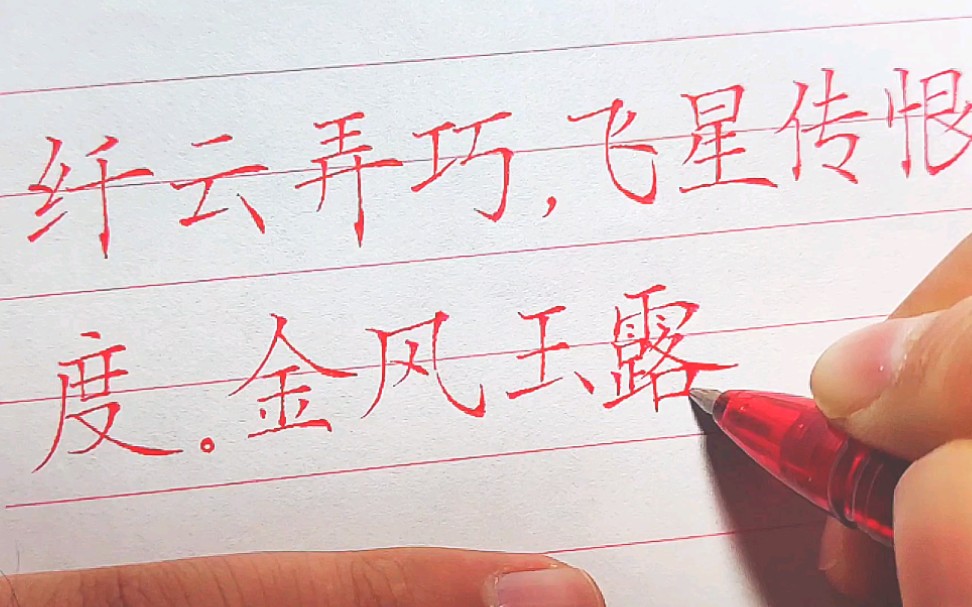 纤云弄巧,飞星传恨
度。金风玉露